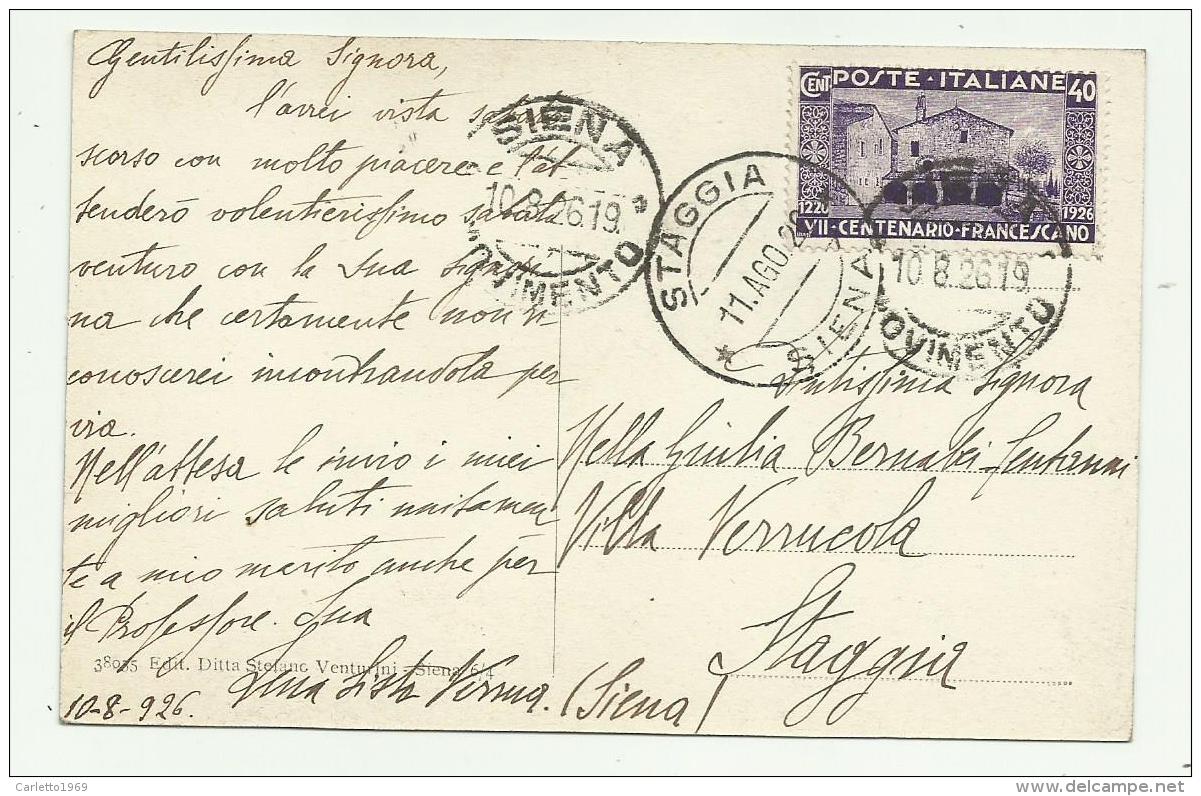 Gentilissima Signora,
l'avrei vista sabato
scorso con molto piacere e l'at
tenderò volentierissimo sabato
venturo con la Sua Signori
na che certamente non ri
conoscerei incontrandola per
via.
Nell'attesa le invio i miei
migliori saluti unitamen
te a mio marito anche per
il Professore. Sua
38035 Edit. Ditta Stefano Venturini - Siena 6/4
10-8-926.
CENT POSTE·ITALIANE 40
1226 1926
VII·CENTENARIO·FRANCESCANO
SIENA
10.8.26.19.
MOVIMENTO
STAGGIA
11.AGO.26
SIENA
SIENA
10 8.26.19
MOVIMENTO
Gentilissima Signora
Nella Giulia Bernabei
Villa Verrucola
Staggia
(Siena)
Carletto1969
www.delcampe.net